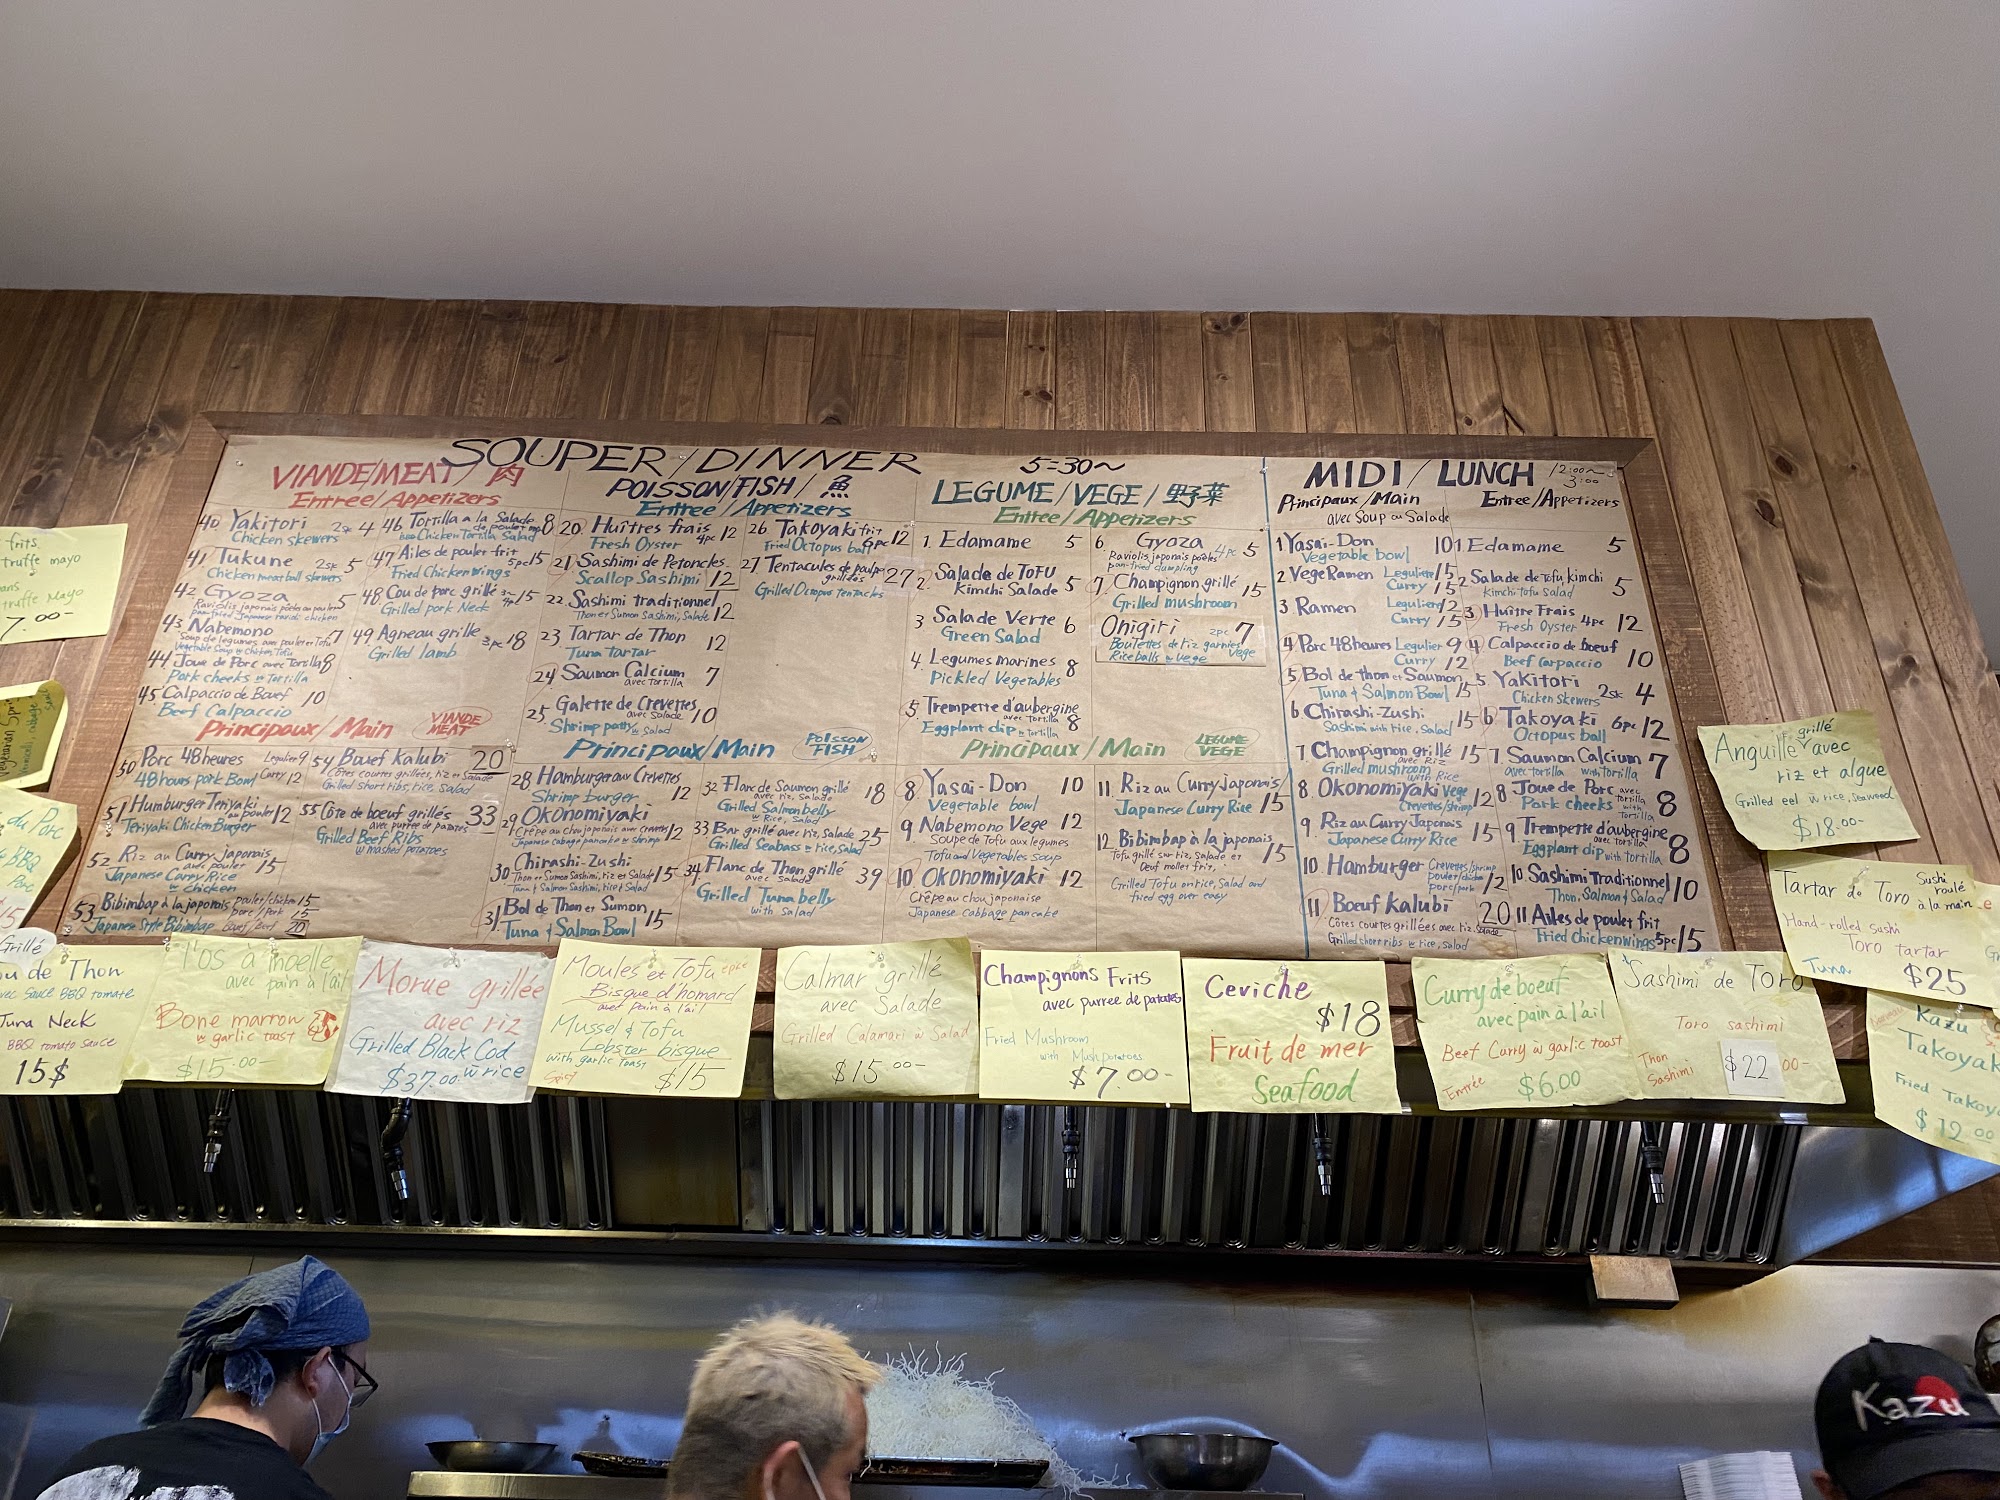 SOUPER/DINNER 5=30~
VIANDE/MEAT/肉
Entree/Appetizers
40 Yakitori 2sk 4
Chicken skewers
41 Tukune 2sk 5
Chicken meat ball skewers
42 Gyoza 5
Raviolis japonais poêles au poulet
43 Nabemono 7
Soupe de legumes avec poulet et Tofu
Vegetable Soup w Chicken, Tofu
44 Joue de Porc avec Tortilla 8
Pork cheeks w Tortilla
45 Calpaccio de Bœuf 10
Beef Calpaccio
46 Tortilla a la Salade 8
de poulet
Chicken Tortilla Salad
47 Ailes de poulet frit 15
5pc
Fried Chicken wings
48 Cou de porc grillé 15
Grilled pork Neck
49 Agneau grille 2pc 18
Grilled lamb
Principaux/Main VIANDE MEAT
50 Porc 48heures Legulier 9
48hours pork Bowl Curry 12
51 Hamburger Teriyaki 12
au poulet
Teriyaki Chicken Burger
52 Riz au Curry Japonais 15
avec poulet
Japanese Curry Rice
w chicken
53 Bibimbap à la japonais poulet/chicken 15
porc/pork 15
Japanese Style Bibimbap bœuf/Beef 20
54 Bouef Kalubi 20
Côtes courtes grillées, riz et Salade
Grilled short ribs, rice, salad
55 Côte de boeuf grillés 33
avec purree de patates
Grilled Beef Ribs
w mashed potatoes
POISSON/FISH/魚
Entree/Appetizers
20. Huîtres frais 4pc 12
Fresh Oyster
21 Sashimi de Petoncles
Scallop Sashimi 12
22 Sashimi traditionnel 12
Thon et Sumon Sashimi, Salade
23 Tartar de Thon 12
Tuna tartar
24 Saumon Calcium 7
avec Tortilla
25. Galette de Crevettes 10
avec Salade
Shrimp patty w Salad
26 Takoyaki frit 12
6pc
Fried Octopus ball
27 Tentacules de poulpe 27
grillées
Grilled Octopus tentacles
Principaux/Main POISSON FISH
28 Hamburger aux Crevettes 12
Shrimp burger
29 Okonomiyaki 12
Crêpe au chou japonais avec crevettes
Japanese cabage pancake w shrimp
30 Chirashi-Zushi 15
Thon et Sumon Sashimi, riz et Salade
Tuna & Salmon Sashimi, rice & Salad
31 Bol de Thon et Sumon 15
Tuna & Salmon Bowl
32 Flanc de Saumon grillé 18
avec riz, Salade
Grilled Salmon belly
w Rice, Salad
33 Bar grillé avec riz, Salade 25
Grilled Seabass w rice, Salad
34 Flanc de Thon grillé 39
avec salade
Grilled Tuna belly
with Salad
LEGUME/VEGE/野菜
Entree/Appetizers
1. Edamame 5
2. Salade de ToFU 5
Kimchi Salade
3 Salade Verte 6
Green Salad
4. Legumes marines 8
Pickled Vegetables
5. Trempette d'aubergine 8
avec Tortilla
Eggplant dip w Tortilla
6. Gyoza 4pc 5
Raviolis japonais poêles
pan-fried dumpling
7. Champignon grillé 15
Grilled mushroom
Onigiri 2pc 7
Boulettes de riz garnies Vege
Rice balls w Vege
Principaux/Main LEGUME VEGE
8 Yasai-Don 10
Vegetable bowl
9 Nabemono Vege 12
Soupe de Tofu aux legumes
Tofu and Vegetables soup
10 Okonomiyaki 12
Crêpe au chou japonaise
Japanese cabbage pancake
11 Riz au Curry Japonais 15
Japanese Curry Rice
12 Bibimbap à la japonais 15
Tofu grillé sur riz, Salade et
Oeuf mollet frit,
Grilled Tofu on rice, Salad and
fried egg over easy
MIDI/LUNCH 12:00~3:00
Principaux/Main
avec Soup ou Salade
1 Yasai-Don 10
Vegetable bowl
2 Vege Ramen Legulier 15
Curry 15
3 Ramen Legulier 12
Curry 15
4 Porc 48heures Legulier 9
Curry 12
5 Bol de thon et Saumon
Tuna & Salmon Bowl 15
6 Chirashi-Zushi 15
Sashimi with rice, Salad
7 Champignon grillé 15
avec Riz
Grilled mushroom
with Rice
8 Okonomiyaki Vege 12
Crevettes/shrimp
9. Riz au Curry Japonais 15
Japanese Curry Rice
10. Hamburger Crevettes/shrimp 12
poulet/chicken
porc/pork
11 Bœuf Kalubi 20
Côtes courtes grillées avec riz, Salade
Grilled short ribs w rice, Salad
Entree/Appetizers
1 Edamame 5
2 Salade de Tofu kimchi 5
Kimchi tofu Salad
3 Huître Frais 4pc 12
Fresh Oyster
4 Calpaccio de bœuf 10
Beef Carpaccio
5 Yakitori 4
Chicken Skewers 2sk
6 Takoyaki 6pc 12
Octopus ball
7. Saumon Calcium 7
avec tortilla with tortilla
8 Joue de Porc avec Tortilla 8
Pork cheeks with Tortilla
9 Trempette d'aubergine 8
Eggplant dip with tortilla
10 Sashimi Traditionnel 10
Thon, Salmon & Salad
11 Ailes de poulet frit 15
Fried Chicken wings 5pc
frits
truffe mayo
truffe Mayo
7.00-
du Porc
BBQ
$15
Grillé
de Thon
avec Sauce BBQ tomate
Tuna Neck
BBQ tomato sauce
15$
l'os à moelle
avec pain à l'ail
Bone marrow
w garlic toast
$15.00-
Morue grillée
avec riz
Grilled Black Cod
w rice
$37.00
Moules et Tofu épicé
Bisque d'homard
avec pain à l'ail
Mussel & Tofu
Lobster bisque
with garlic toast
$15
Calmar grillé
avec Salade
Grilled Calamari w Salad
$15.00-
Champignons Frits
avec purree de patates
Fried Mushroom
with Mush potatoes
$7.00-
Ceviche
$18
Fruit de mer
Seafood
Curry de boeuf
avec pain à l'ail
Beef Curry w garlic toast
Entrée $6.00
Sashimi de Toro
Toro sashimi
Thon
Sashimi $22.00-
Anguille grillé avec
riz et algue
Grilled eel w rice, Seaweed
$18.00-
Tartar de Toro Sushi roulé à la main
Hand-rolled sushi
Toro tartar
Tuna $25
Kazu
Takoyak
Fried Takoy
$12.00
Kazu